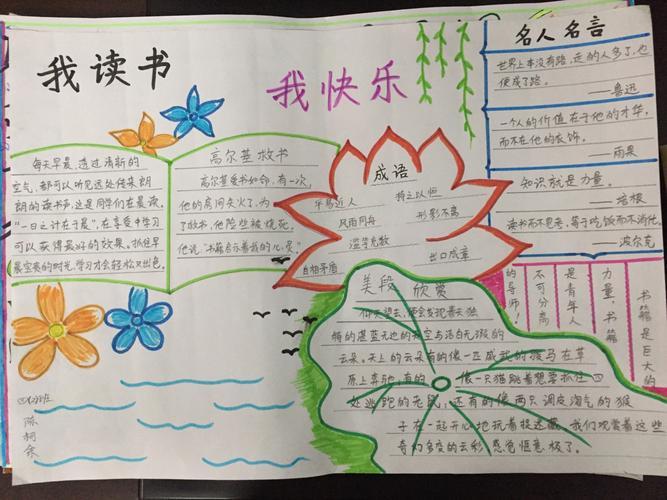 我读书
我快乐
每天早晨，透过清新的
空气，都可以听见远处传来朗
朗的读书声，这是同学们在晨读。
“一日之计在于晨”，在享受中学习
可以获得最好的效果。抓住早
晨宝贵的时光，学习才会轻松又出色。
高尔基救书
高尔基爱书如命，有一次，
他的房间失火了，为
了救书，他险些被烧死。
他说“书籍启示着我的心灵”
成语
平易近人
持之以恒
风雨同舟
形影不离
滥竽充数
自相矛盾
出口成章
名人名言
世界上本没有路，走的人多了，也
便成了路。
——鲁迅
一个人的价值在于他的才华，
而不在他的衣饰。
——雨果
知识就是力量。
——培根
读书而不思考，等于吃饭而不消化。
——波尔克
书籍是巨大的
力量，书籍
是青年人
不可分离
的导师！
美段 欣赏
仰天望去，便会发现着天独
特的湛蓝无边的天空与洁白无瑕的
云朵。天上的云朵有的像一匹威武的骏马在草
原上奔驰，有的像一只猫跳着想要抓住四
处逃跑的老鼠，还有的像两只调皮淘气的猴
子在一起开心地玩着捉迷藏。我们观赏着这些
奇幻多变的云彩，感觉惬意极了。
陈柯余